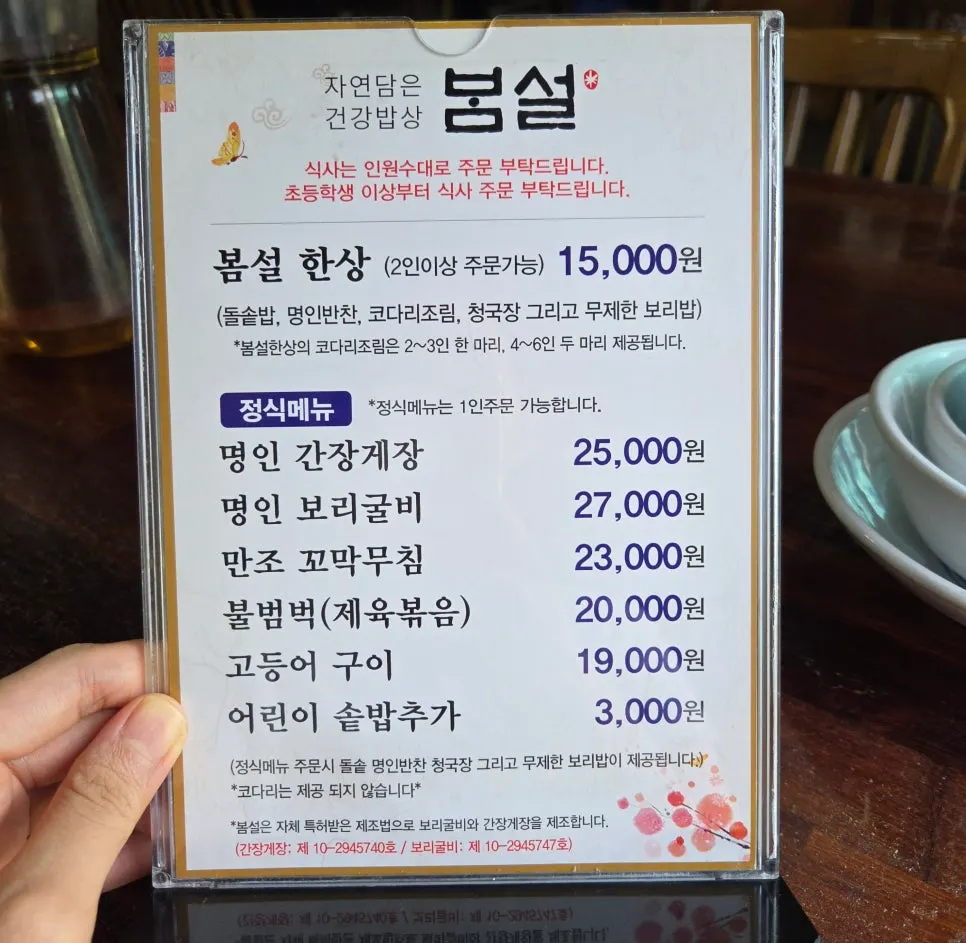 자연담은
건강밥상
봄설
식사는 인원수대로 주문 부탁드립니다.
초등학생 이상부터 식사 주문 부탁드립니다.
봄설 한상 (2인이상 주문가능) 15,000원
(돌솥밥, 명인반찬, 코다리조림, 청국장 그리고 무제한 보리밥)
*봄설한상의 코다리조림은 2~3인 한 마리, 4~6인 두 마리 제공됩니다.
정식메뉴 *정식메뉴는 1인주문 가능합니다.
명인 간장게장 25,000원
명인 보리굴비 27,000원
만조 꼬막무침 23,000원
불범벅(제육볶음) 20,000원
고등어 구이 19,000원
어린이 솥밥추가 3,000원
(정식메뉴 주문시 돌솥 명인반찬 청국장 그리고 무제한 보리밥이 제공됩니다.)
*코다리는 제공 되지 않습니다*
*봄설은 자체 특허받은 제조법으로 보리굴비와 간장게장을 제조합니다.
(간장게장: 제 10-2945740호 / 보리굴비: 제 10-2945747호)